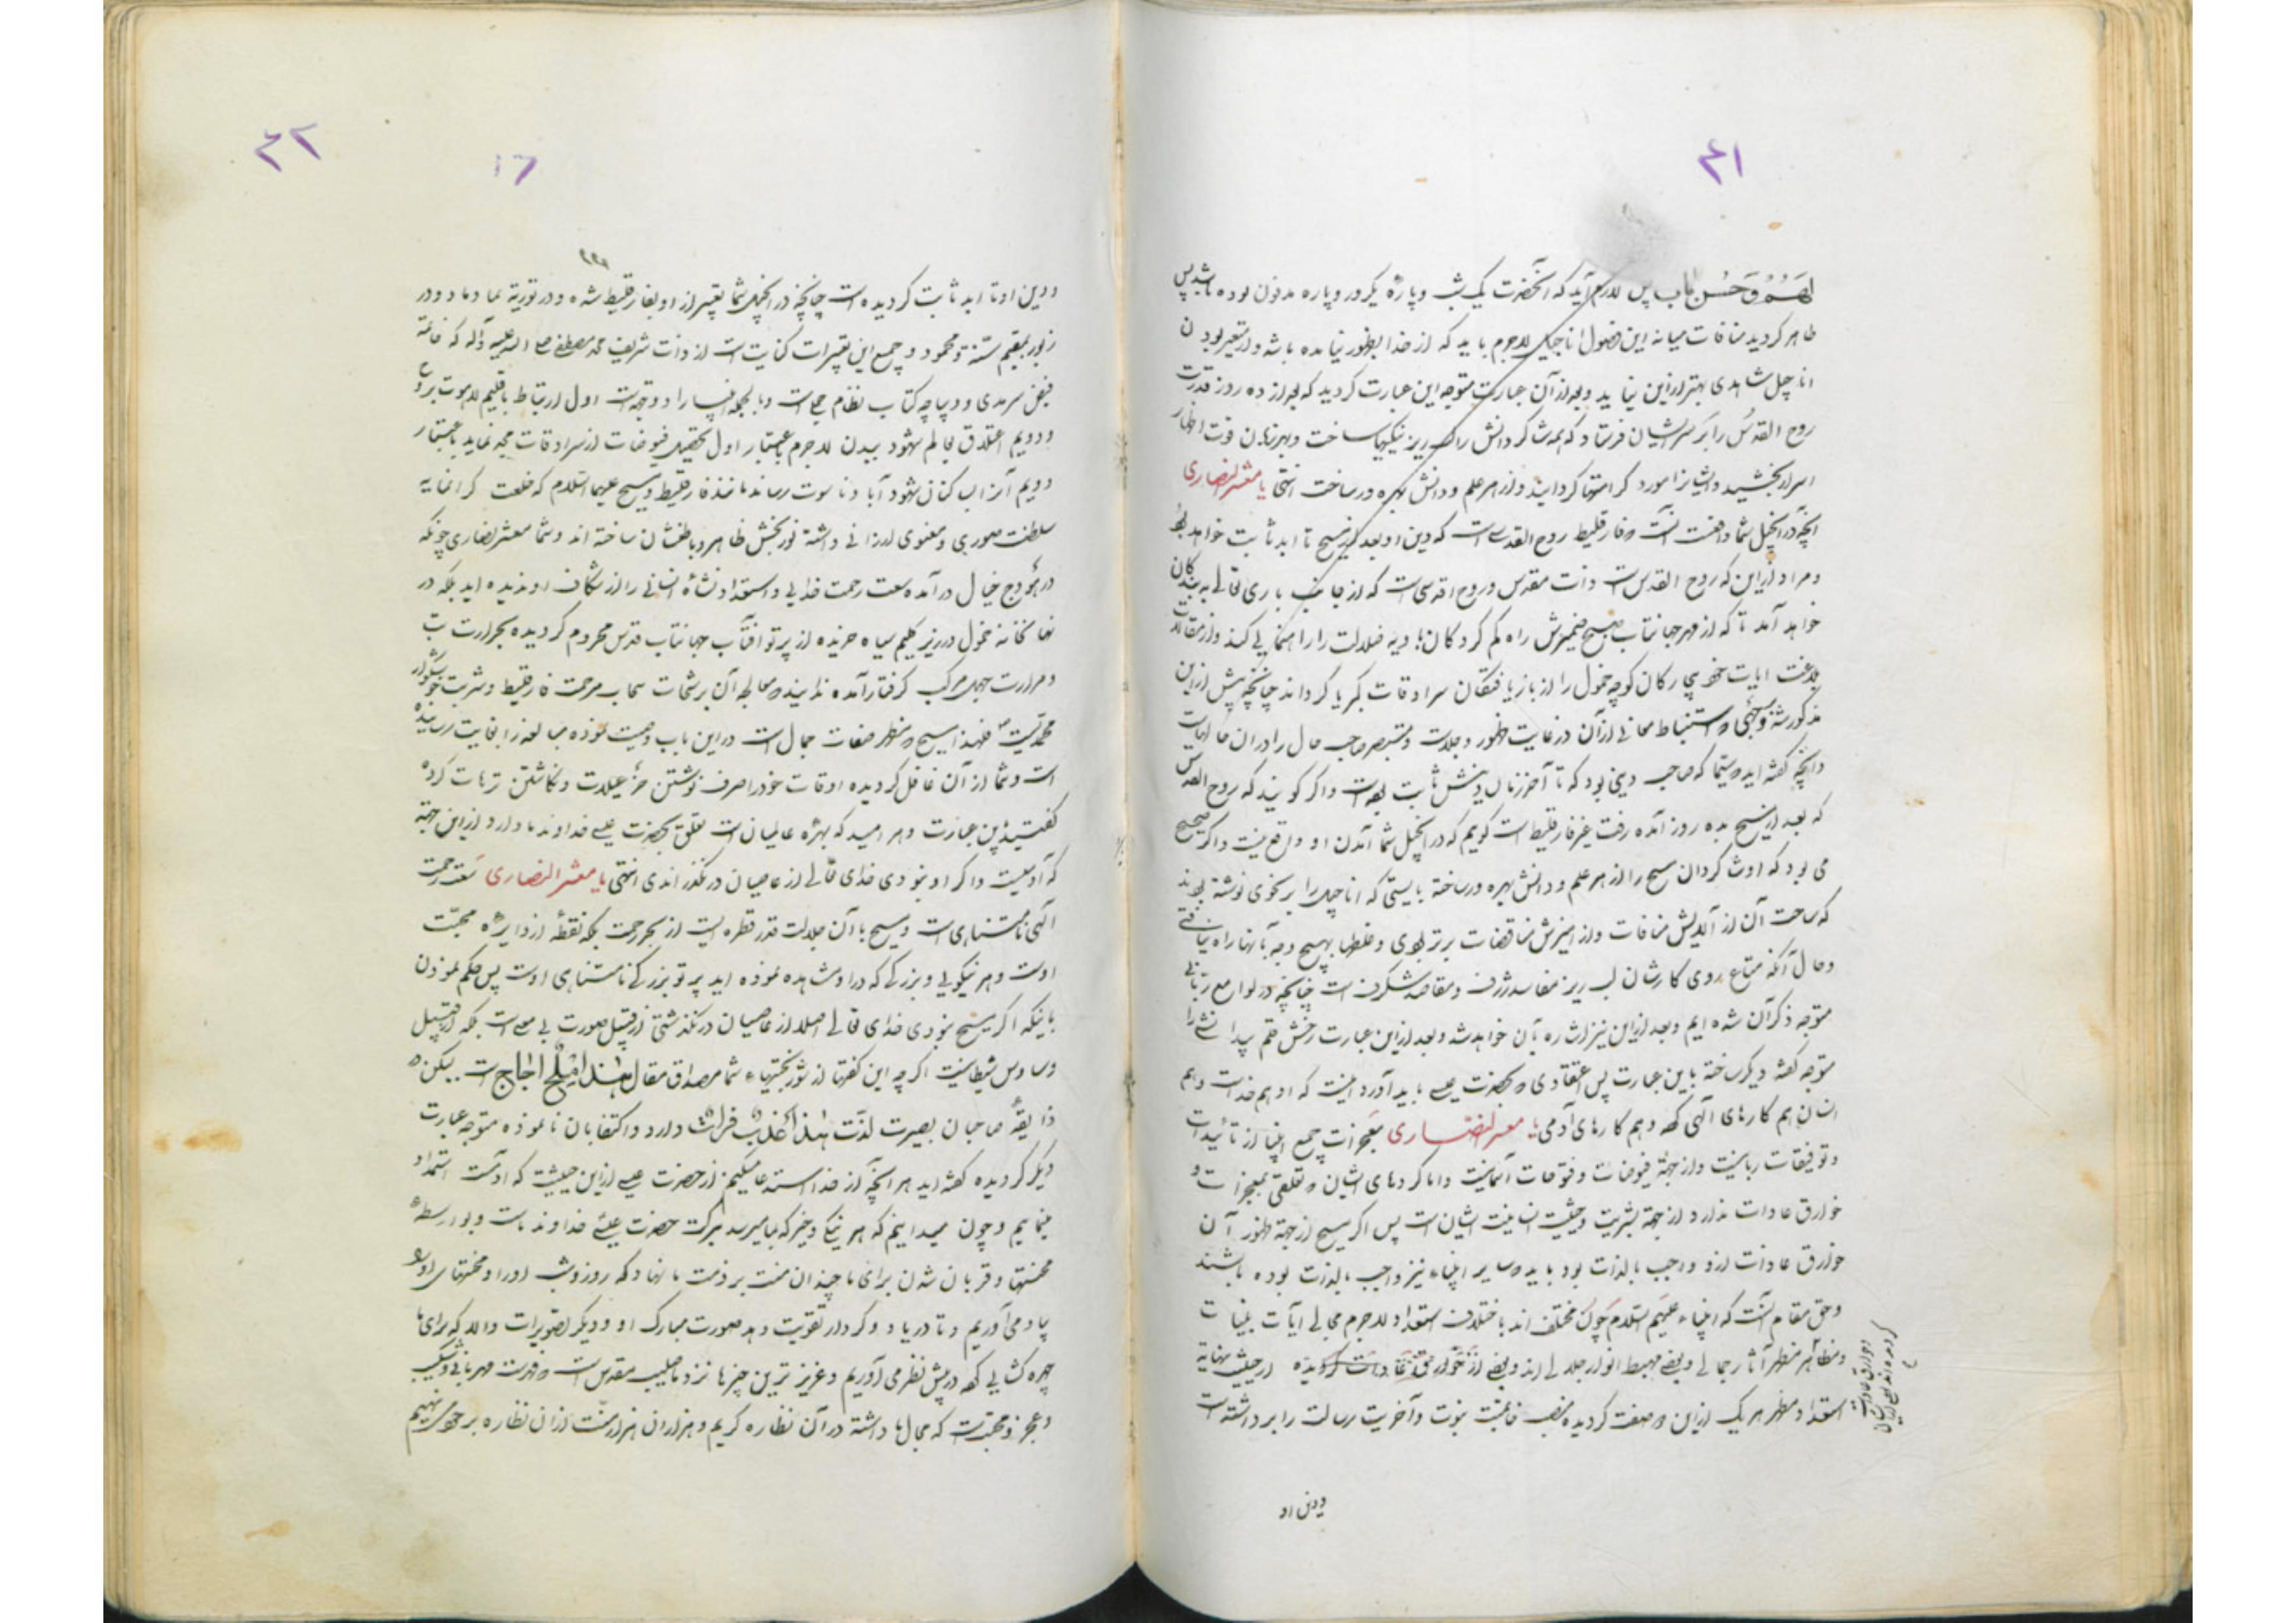 ۴۱
لهم و حسن مآب پس لازم آید که آنحضرت یک شب و پاره یکروز و پاره مدفون بوده باشد پس
ظاهر کردید منافات میانه این فصول اناجیل لاجرم باید که از خدا بظهور نیامده باشد و از متغیر بودن
اناجیل شاهدی بهتر از این نیاید و بعد از آن عبارت متوجه این عبارت کردید که بعد از ده روز قدرت
روح القدس را بر سر ایشان فرستاد که همه شاکردانش را لبریز نیکیها ساخت و بهر زبان قوت اظهار
اسرار بخشید و ایشانرا مورد کرامتها کردانید و از هر علم و دانش بهره ور ساخت انتهی یا معشر النصاری
آنچه در انجیل شما واقعست آنست که فارقلیط روح القدس است که دین او بعد از مسیح تا ابد ثابت خواهد بود
و مراد از این که روح القدس است ذات مقدس و روح اقدسی است که از جانب باری تعالی به بندکان
خواهد آمد تا که از مهر جهانتاب صبح ضمیرش راه کم کردکان بادیه ضلالت را راهنمایی کند و از مقالات
بلاغت ایات خود بیچارکان کوچه خمول را از باز یافتکان سرادقات کبریا کرداند چنانچه پیش از این
مذکور شد و وجهی که استنباط معانی از آن در غایت ظهور و جلاست و مستبصر صاحب حال را در ان حالهاست
و آنچه کفته اید که مسیحا که صاحب دینی بود که تا آخر زمان دینش ثابت بوده است و اکر کویند که روح القدس
که بعد از مسیح بده روز آمده رفت غیر فارقلیط است کویم که در انجیل شما آمدن او واقع نیست و اکر صحیح
می بود که او شاکردان مسیح را از هر علم و دانش بهره ور ساخته بایستی که اناجیل را بر نحوی نوشته بودند
که ساحت آن از آلایش منافات و از امیزش مناقضات برتر بودی و غلطها بهیچ وجه بآنها راه نیافتی
و حال آنکه متاع روی کارشان لب ریز مفاسد ژرف و مقاصد شکرف است چنانچه در لوامع ربانی
متوجه ذکر آن شده ایم و بعد از این نیز اشاره بآن خواهد شد و بعد از این عبارت رخش قلم بیدا نشی را
متوجه کفته دیکر ساخته باین عبارت پس اعتقادی که بحضرت عیسی باید آورد اینست که او هم خداست و هم
انسان هم کارهای آلهی کرده و هم کارهای آدمی یا معشر النصاری معجزات جمیع انبیا از تائیدات
و توفیقات ربانیست و از جهة فیوضات و فتوحات آسمانیست و اما کردهای ایشان که تعلقی بمعجزات و
خوارق عادات ندارد از جهة بشریت و حیثیت انسانیت ایشان است پس اکر مسیح از جهة ظهور آن
خوارق عادات از او واجب بالذات بود باید که سایر انبیاء نیز واجب بالذات بوده باشند
و حق مقام آنست که انبیاء علیهم السلام چون مختلف اند باختلاف استعداد لاجرم مجالی آیات بینات
و مظاهر مظهر آثار جمالی و بعضی مهبط انوار جلالی اند و بعضی از خوارق عادات کردیده از حیثیت نهایة
استعداد مظهر هر یک از این دو صفت کردیده منصب خاتمیت نبوت و آخریت رسالت را برداشته است
و دین او
۴۲
۱۶
و دین او تا ابد ثابت کردیده است چنانچه در انجیل شما تعبیر از او بفارقلیط شده و در توریة بمادماد و در
زبور بمقیم سنة و محمود و جمیع این تعبیرات کنایت است از ذات شریف محمد مصطفی صلی الله علیه و آله که خاتمه
فیض سرمدی و دیباچه کتاب نظام جملی است و بالجمله انبیا را دو جهة است اول ارتباط باقلیم لاموت بروح
و دویم اعتلاق بعالم شهود ببدن لاجرم باعتبار اول تحصیل فیوضات از سرادقات مجد نماید باعتبار
دویم آنرا بساکنان شهود آباد ناسوت رساند مانند فارقلیط و مسیح علیهما السلام که خلعت کرانمایه
سلطنت صوری و معنوی ارزانی داشته نور بخش ظاهر و باطنشان ساخته اند و شما معشر نصاری چونکه
در هودج خیال در آمده سعت رحمت خدایی و استعداد نشاه انسانی را از شکاف او ندیده اید بلکه در
نهانخانه خمول در زیر کلیم سیاه خزیده از پرتو آفتاب جهانتاب قدس محروم کردیده بحرارت تب
و مرارت جهل مرکب کرفتار آمده ندانید که معالجه آن برشحات سحاب مرحمت فارقلیط و شربت خوشکوار
محمدیست فلهذا مسیح که مظهر صفات جمال است در این باب وصیت نموده مبالغه را بغایت رسانیده
است و شما از آن غافل کردیده اوقات خود را صرف نوشتن خزعبیلات و نکاشتن ترهات کرده
کفتید این عبارت و هر امید که بهره عالمیان است تعلق بحضرت عیسی خداوند ما دارد از این جهة
که آدمیست و اکر او نبودی خدای تعالی از عاصیان در نکذراندی انتهی یا معشر النصاری سعت رحمت
آلهی نامتناهی است و مسیح با آن جلالت قدر قطره ایست از بحر رحمت بلکه نقطه از دایره محبت
اوست و هر نیکویی و بزرکی که در او مشاهده نموده اید پرتو بزرکی نامتناهی اوست پس حکم نمودن
باینکه اکر مسیح نبودی خدای تعالی اصلا از عاصیان در نکذشتی از قبیل صورت بی معنی است بلکه از قبیل
وساوس شیطانیست اکر چه این کفتها از شوربختیهاء شما مصداق مقال هذا ملح اجاج است لیکن
ذایقه صاحبان بصیرت لذت هذا عذب فرات دارد و اکتفا بان نانموده متوجه عبارت
دیکر کردیده کفته اید هر آنچه از خدا استدعا میکنیم از حضرت عیسی از این حیثیت که آدمست استمداد
مینماییم و چون میدانیم که هر نیکی و خیر که بما میرسد ببرکت حضرت عیسی خداوند ماست و بواسطه
محنتها و قربان شدن برای ما چندان منت بر ذمت ما نهاد که روز و شب او را و محنتهای او را
بیاد می آوریم و تا در یاد و کردار تقویت دهد صورت مبارک او و دیکر تصویرات والد که برای ما
چهره کشایی کرده در پیش نظر می آوریم و عزیز ترین چیزها نزد ما صلیب مقدس است که فهرست مهربانی و نیکی
و عجز و محبتست که بحال ما داشته در آن نظاره کریم و هزاران هزار منت از ان نظاره بر خود می نهیم